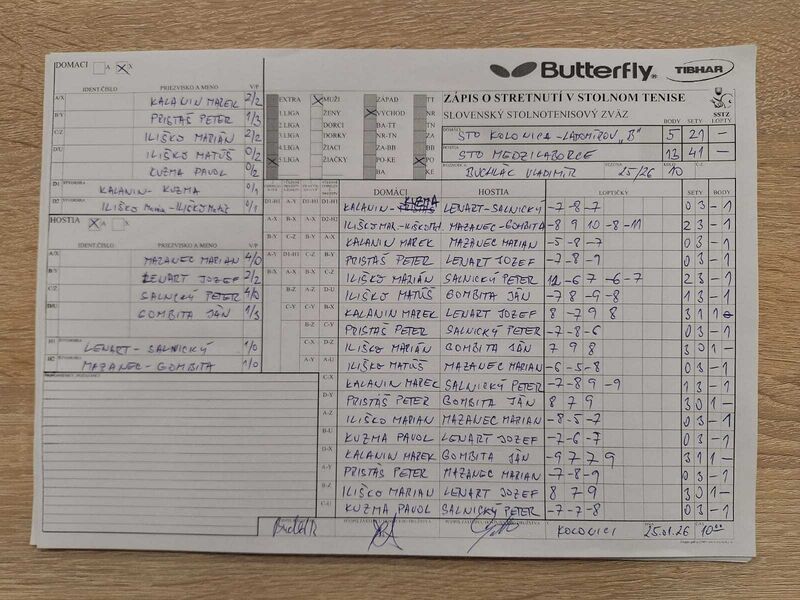 DOMACI A X
Butterfly
TIBHAR
IDENT.ČÍSLO PRIEZVISKO A MENO V/P
A/X KALANIN MAREK 2/2
B/Y PRISTÁŠ PETER 1/3
C/Z ILIŠKO MARIÁN 2/2
D/U ILIŠKO MATÚŠ 0/2
KUZMA PAVOL 0/2
D1 KALANIN - KUZMA 0/1
D2 ILIŠKO Marián - ILIŠKO Matúš 0/1
HOSTIA A X
IDENT.ČÍSLO PRIEZVISKO A MENO V/P
A/X MAZANEC MARIAN 4/0
B/Y LENART JOZEF 2/2
C/Z SALNICKÝ PETER 4/0
D/U GOMBITA JÁN 1/3
H1 LENART - SALNICKÝ 1/0
H2 MAZANEC - GOMBITA 1/0
EXTRA MUŽI ZÁPAD TT
1.LIGA ŽENY VÝCHOD NR
DORCI BA-TT TN
DORKY NR-TN ZA
ŽIACI ZA-BB BB
5.LIGA ŽIAČKY PO-KE PO
KE
ZÁPIS O STRETNUTÍ V STOLNOM TENISE
SLOVENSKÝ STOLNOTENISOVÝ ZVÄZ
SSTZ
BODY SETY LOPTY
STO KOLONICA-LADOMÍROV "B" 5 21 -
STO MEDZILABORCE 13 41 -
BUCHLÁC VLADIMÍR 25/26 10
DOMÁCI HOSTIA LOPTIČKY SETY BODY
KALANIN - KUZMA LENART-SALNICKÝ -7 -8 -7 0 3 - 1
ILIŠKO MAR.-ILIŠKO MAT. MAZANEC-GOMBITA -8 9 10 -8 -11 2 3 - 1
KALANIN MAREK MAZANEC MARIAN -5 -8 -7 0 3 - 1
PRISTÁŠ PETER LENART JOZEF -7 -8 -9 0 3 - 1
ILIŠKO MARIÁN SALNICKÝ PETER 12 -6 7 -6 -7 2 3 - 1
ILIŠKO MATÚŠ GOMBITA JÁN -7 8 -9 -8 1 3 - 1
KALANIN MAREK LENART JOZEF 8 -7 9 8 3 1 1 -
PRISTAŠ PETER SALNICKÝ PETER -7 -8 -6 0 3 - 1
ILIŠKO MARIÁN GOMBITA JÁN 7 9 8 3 0 1 -
ILIŠKO MATÚŠ MAZANEC MARIAN -6 -5 -8 0 3 - 1
KALANIN MAREK SALNICKÝ PETER -7 -8 9 -9 1 3 - 1
PRISTÁŠ PETER GOMBITA JÁN 8 7 9 3 0 1 -
ILIŠKO MARIAN MAZANEC MARIAN -8 -5 -7 0 3 - 1
KUZMA PAVOL LENART JOZEF -7 -6 -7 0 3 - 1
KALANIN MAREK GOMBITA JÁN -9 7 7 9 3 1 1 -
PRISTÁŠ PETER MAZANEC MARIAN -7 -8 -9 0 3 - 1
ILIŠKO MARIAN LENART JOZEF 8 7 9 3 0 1 -
KUZMA PAVOL SALNICKÝ PETER -7 -7 -8 0 3 - 1
KOLONICI 25.01.26 10 00